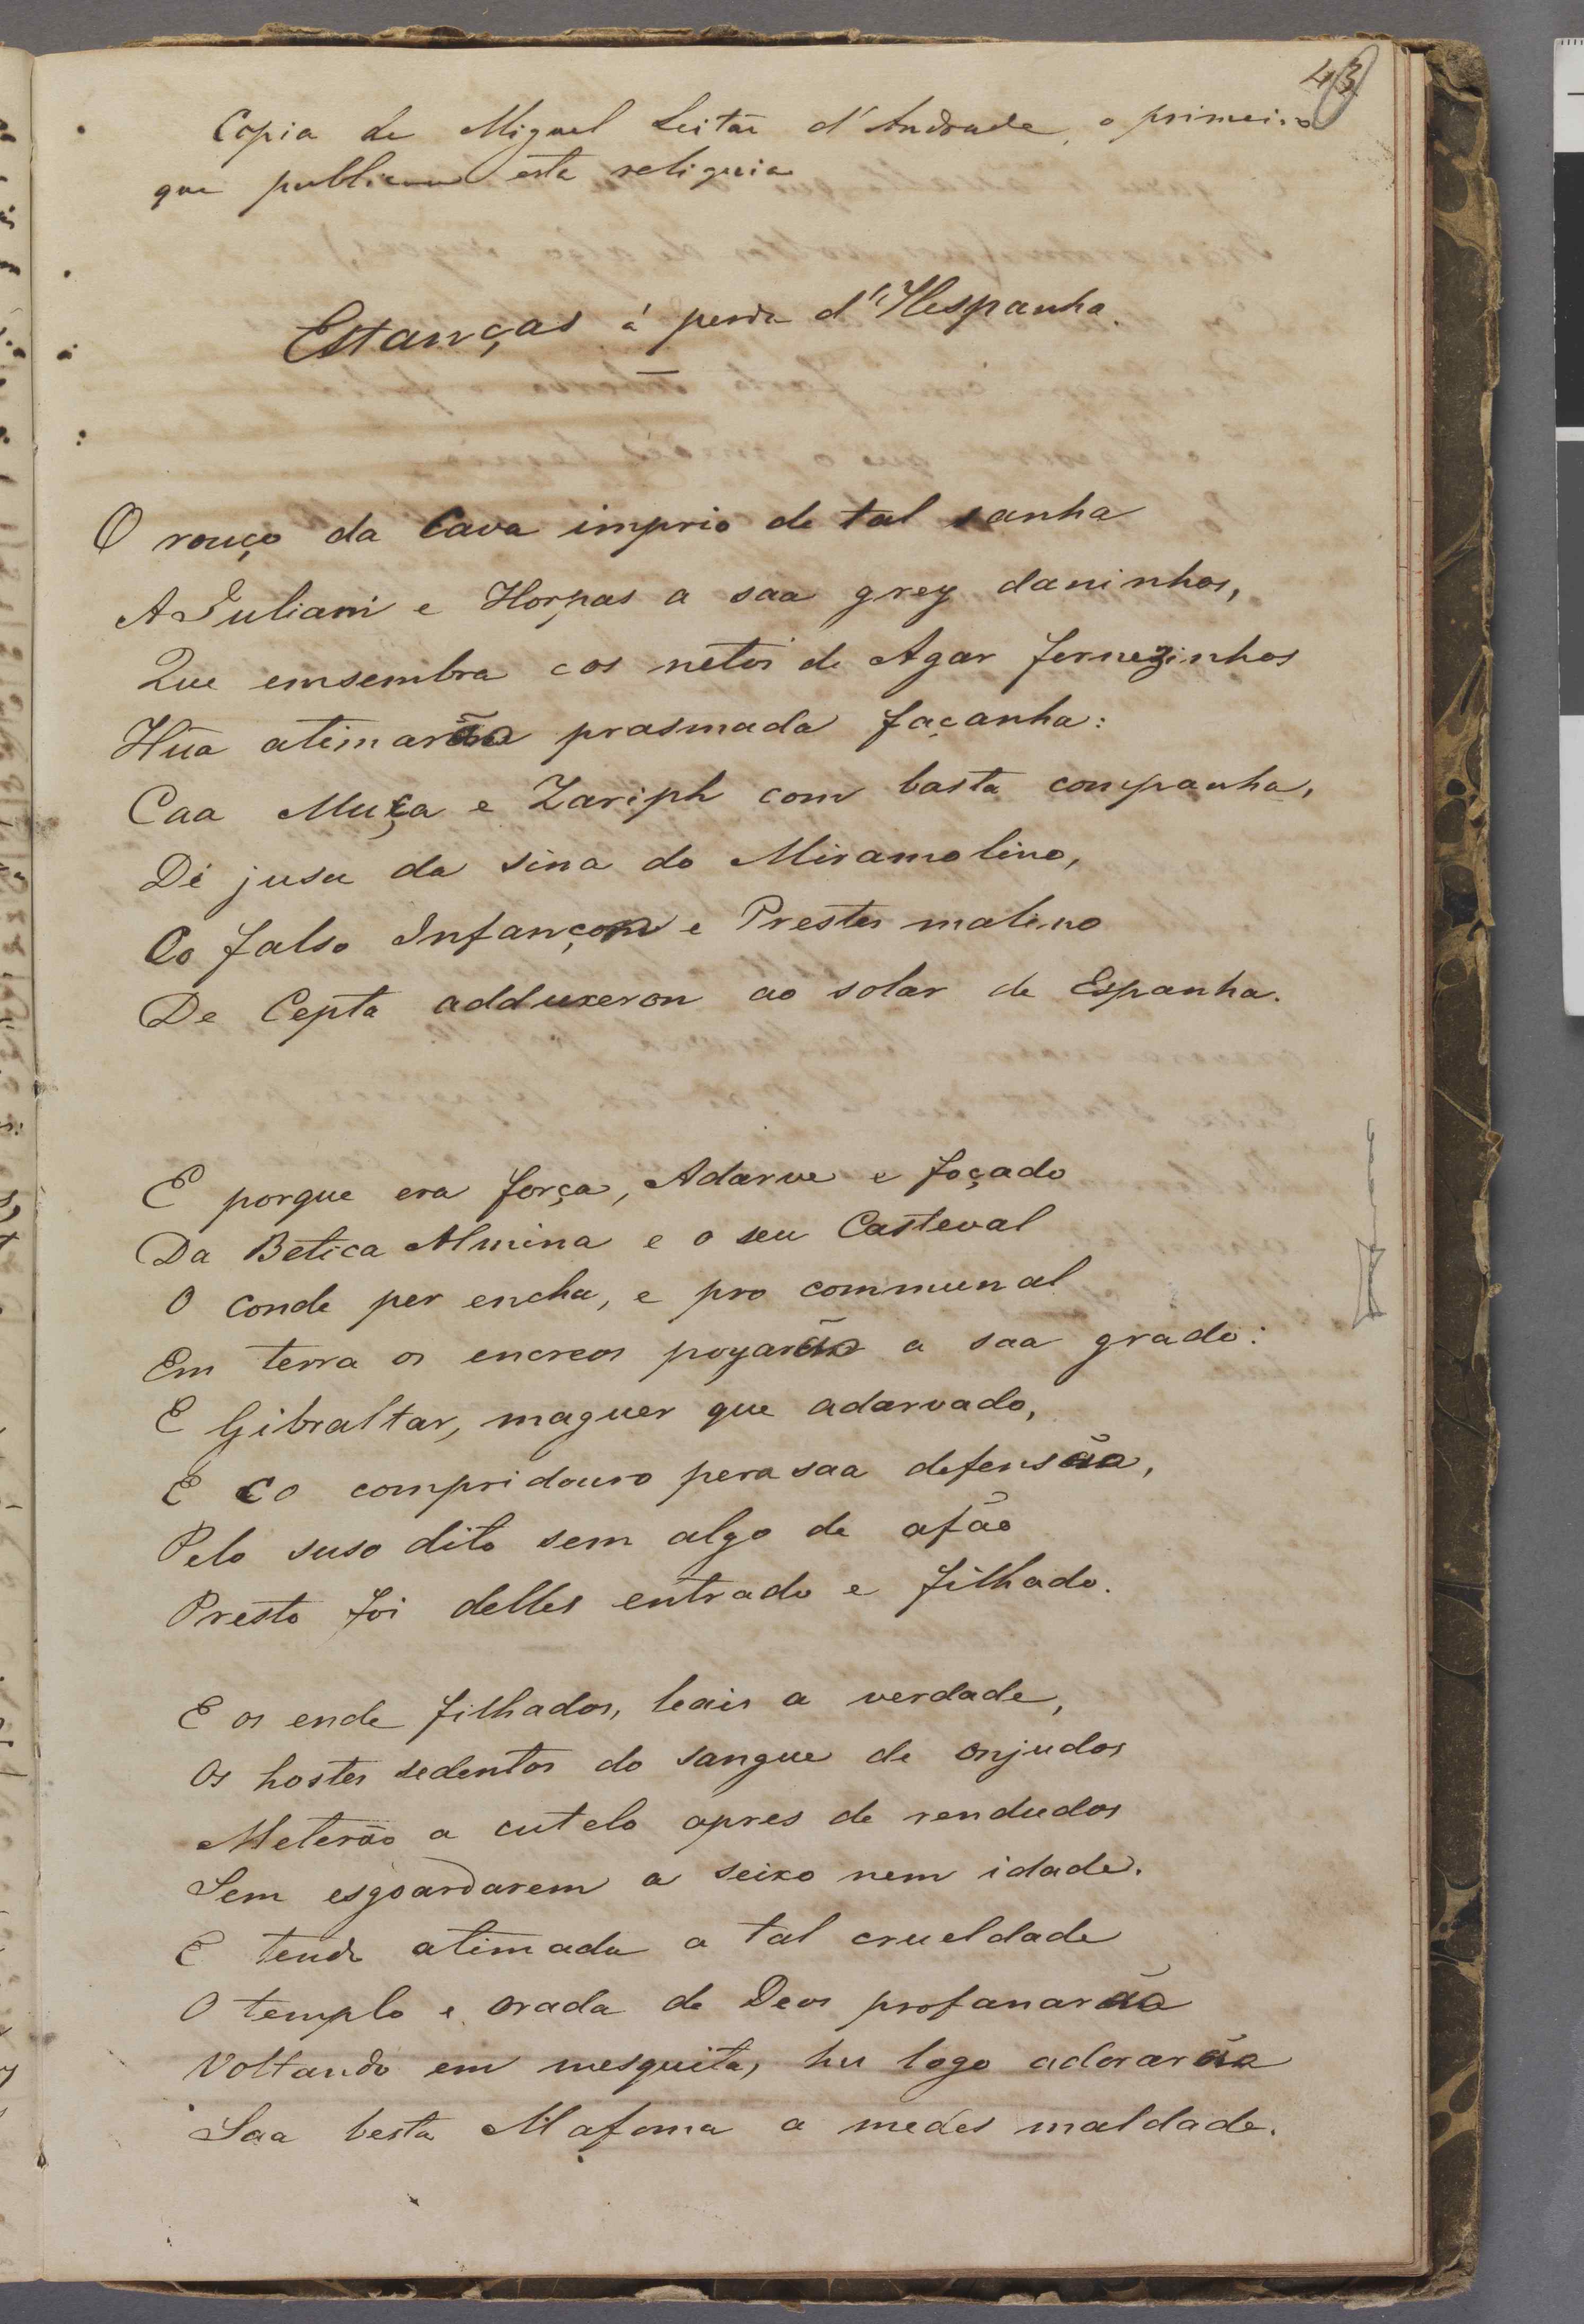 43
Copia de Miguel Leitão d'Andrade, o primeiro
que publicou esta reliquia
Estanças á perda d'Hespanha.
O rouço da Cava imprio de tal sanha
A Juliani e Horpas a saa grey daninhos,
Que emsembra cos netos de Agar fornezinhos
Hũa atimarão prasmada façanha:
Caa Muça e Zariph com basta companha,
Di jusu da sina do Miramolino,
Co falso Infançom e Prestes malino
De Cepta adduxeron ao solar de Espanha.
E porque era força, Adarve e foçado
Da Betica Almina e o seu Casteval
O Conde per encha, e pro communal
Em terra os encreos poyarão a saa grado:
E Gibraltar, maguer que adarvado,
E co compridouro pera saa defensão,
Pelo suso dito sem algo de afão
Presto foi delles entrado e filhado.
E os ende filhados, leais a verdade,
Os hostes sedentos do sangue de onjudos
Meterão a cutelo apres de rendudos
Sem esgoardarem a seixo nem idade.
E tende atimada a tal crueldade
O templo e orada de Deos profanarão
Voltando em mesquita, hu logo adorarão
Saa besta Mafoma a medes maldade.